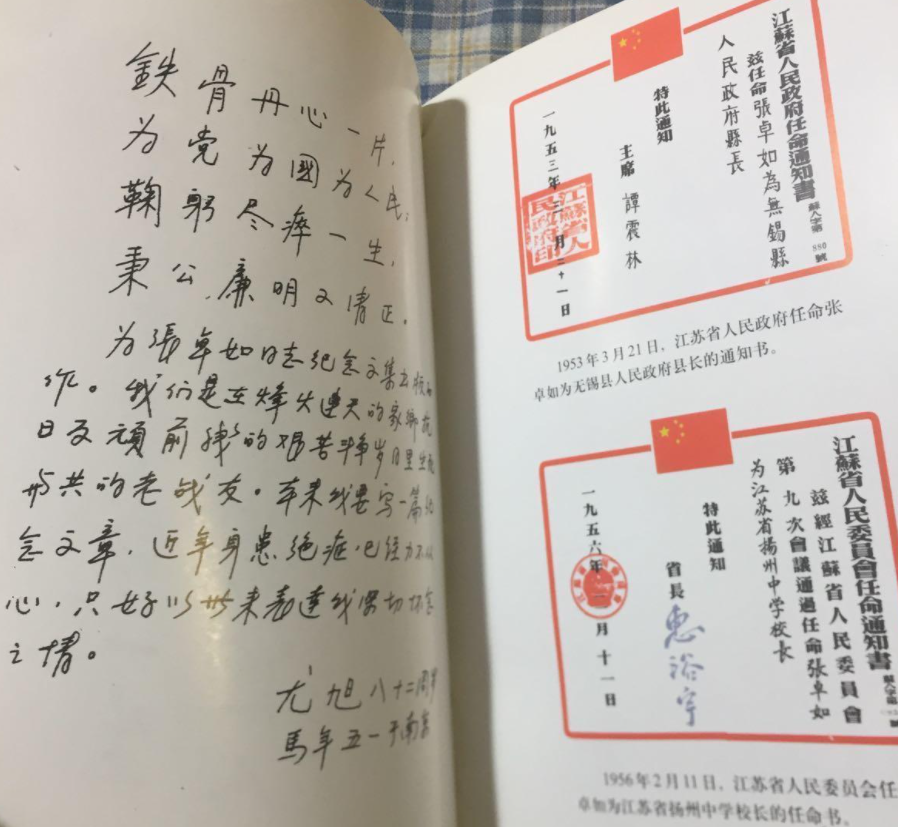 鉄骨丹心一片,
为党为國为人民,
鞠躬尽瘁一生,
秉公廉明又清正。
为張卓如同志纪念文集出版而
作。我们是在烽火連天的家鄉抗
日及頑前線的艰苦斗争岁月里生死
与共的老战友。本来我要写一篇纪
念文章,近年身患绝症,已经力不从
心,只好以此来表达我深切怀念
之情。
尤旭八十二周岁
馬年五一于南京
江蘇省人民政府任命通知書
蘇人字第550號
兹任命張卓如為無錫縣
人民政府縣長
特此通知
主席 譚震林
一九五三年三月二十一日
1953年3月21日,江苏省人民政府任命张
卓如为无锡县人民政府县长的通知书。
江蘇省人民委員會任命通知書
蘇人字第 號
兹經江蘇省人民委員會
第九次會議通過任命張卓如
为江苏省揚州中学校长
特此通知
省長 惠浴宇
一九五六年二月十一日
1956年2月11日,江苏省人民委员会任
卓如为江苏省扬州中学校长的任命书。